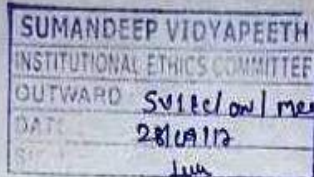 SUMANDEEP VIDYAPEETH
INSTITUTIONAL ETHICS COMMITTEE
OUTWARD SVIEC/ON/
DATE
28/09/17